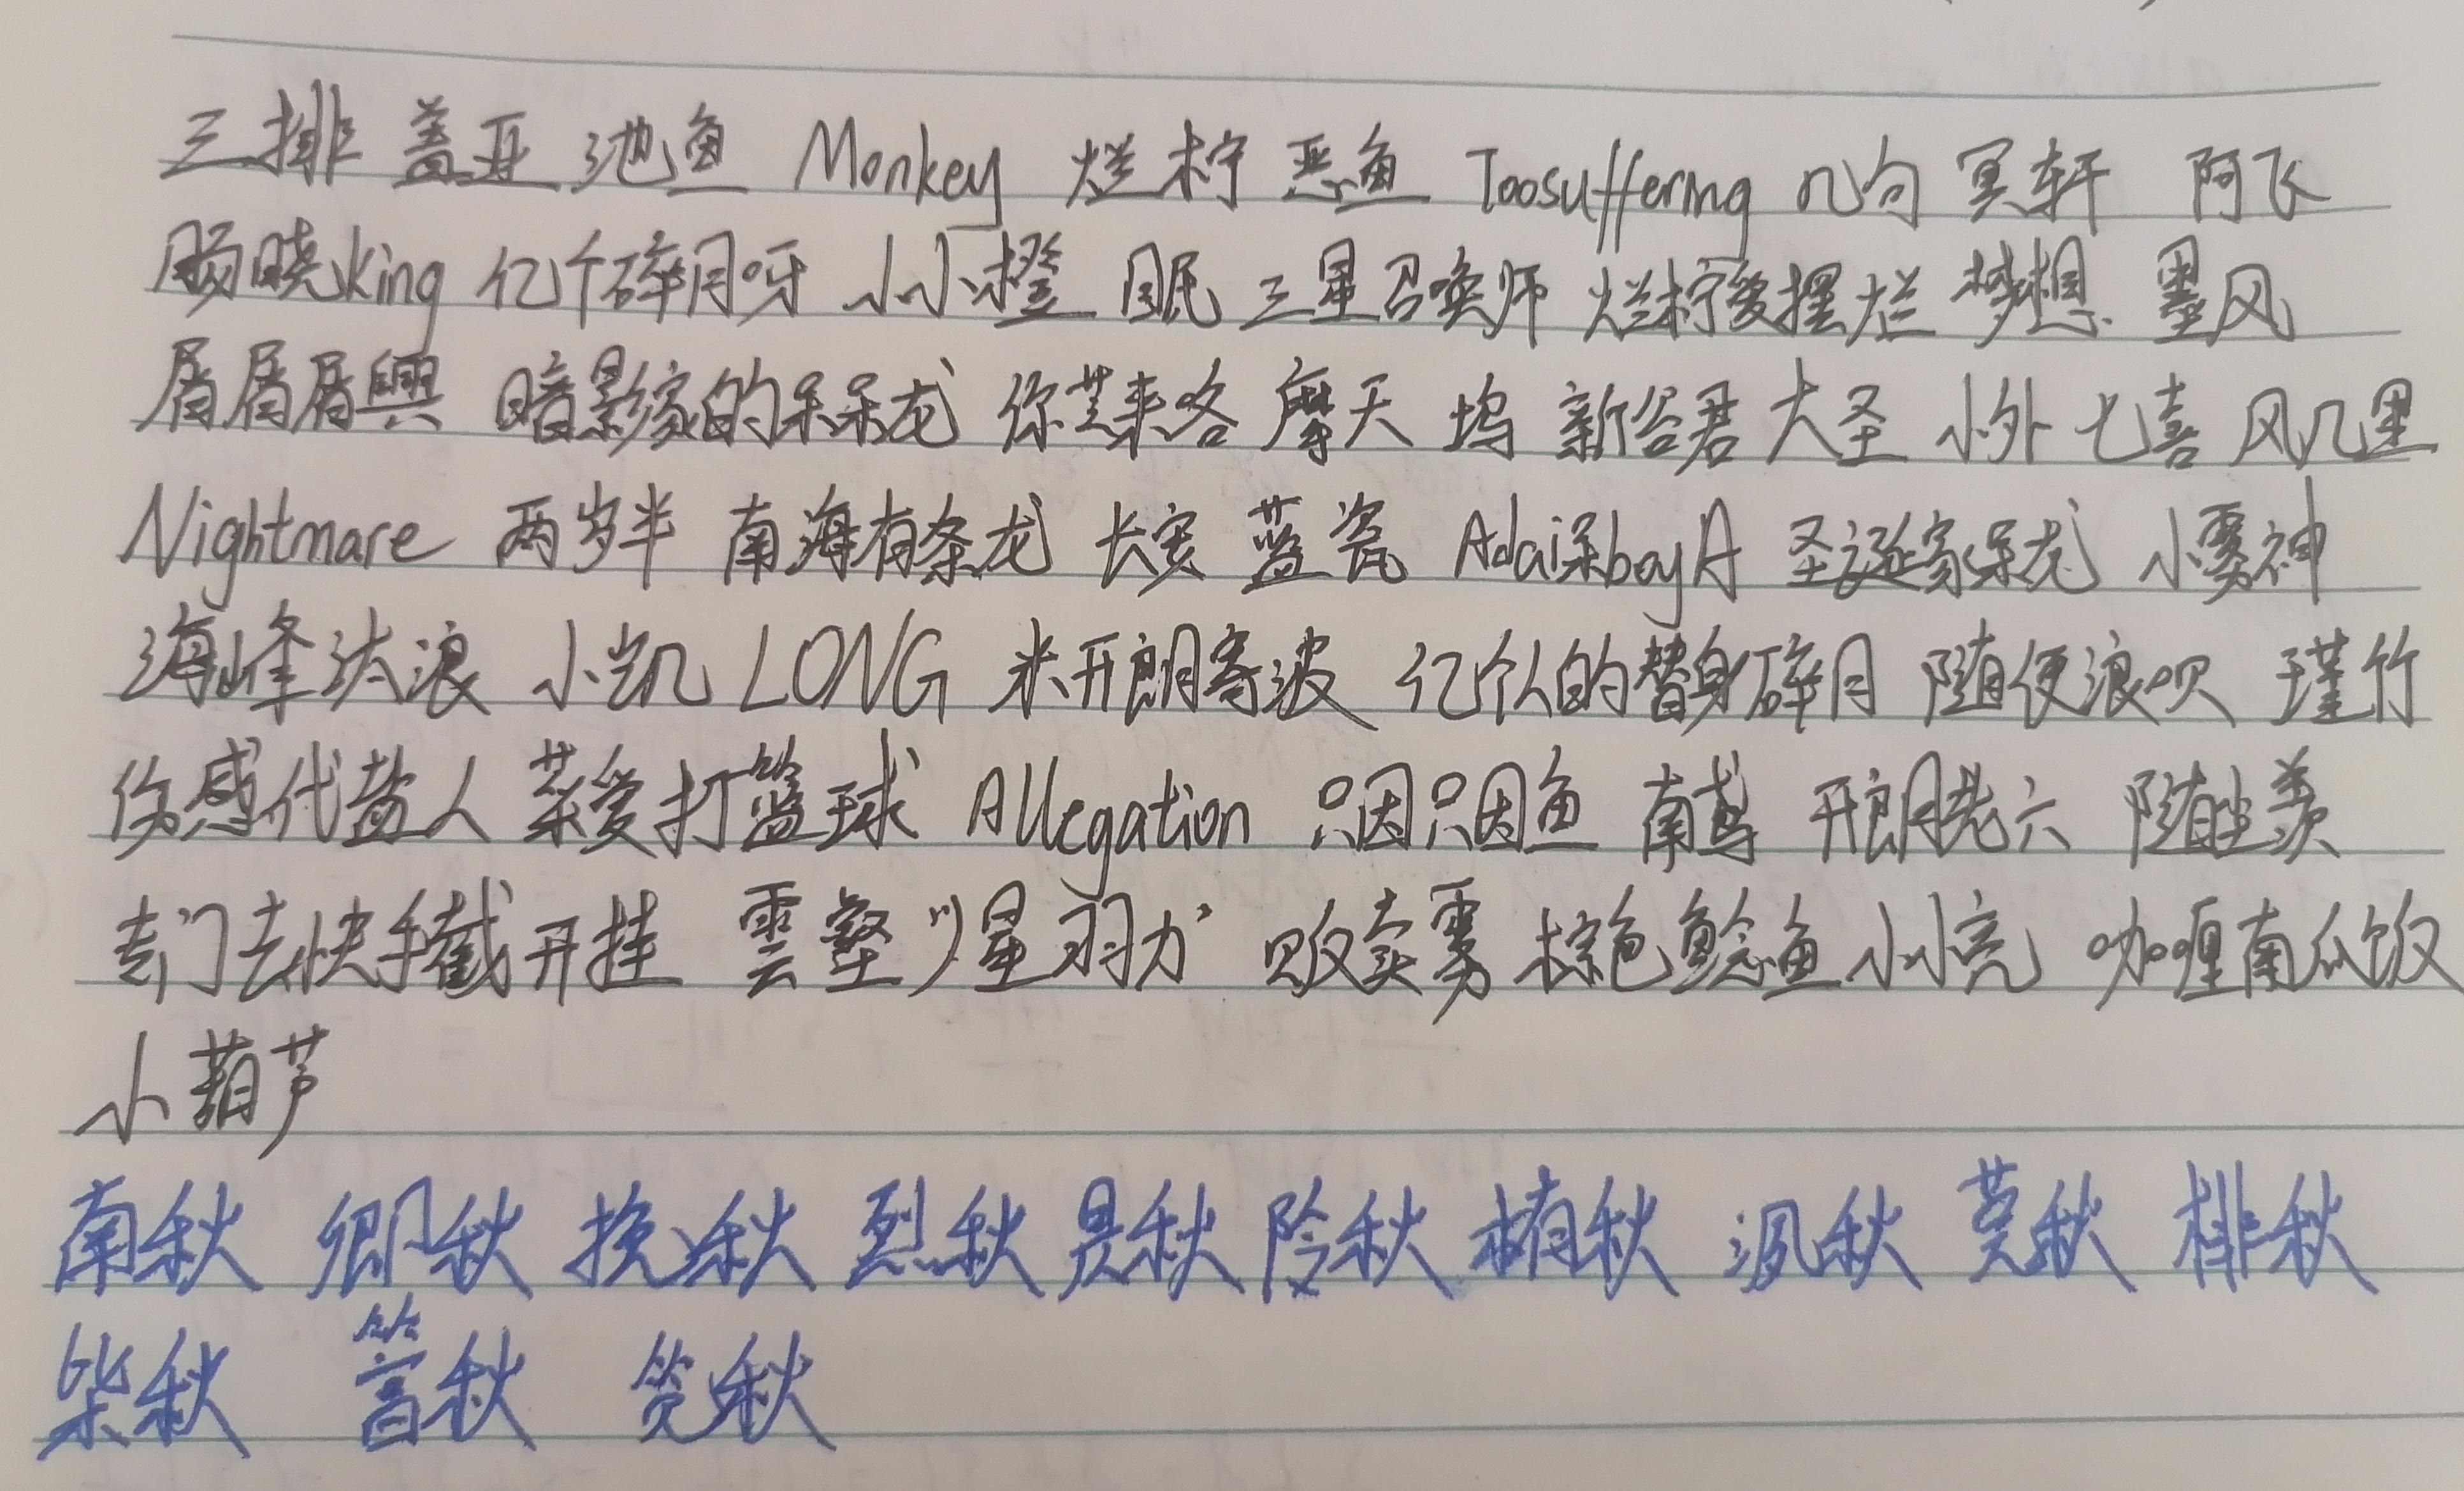 三排 盖亚 池鱼 Monkey 烂柠 恶鱼 Toosuffering 几句 冥轩 阿飞
肠晓king 亿个碎月呀 小小橙 眠 三星召唤师 烂柠爱摆烂 梦想 墨风
屑屑屑興 暗影家的呆呆龙 你芝莱咯 摩天 坞 新谷君 大圣 小外 七喜 风几里
Nightmare 两岁半 南海有条龙 长安 蓝瓷 Adai呆boyA 圣诞家呆龙 小雾神
海峰汰浪 小凯 LONG 米开朗寄波 亿个人的替身碎月 随便浪呗 瑾竹
伤感代替人 菜爱打篮球 Allegation 只因只因鱼 南鸢 开朗老六 随尘羡
专门去快手截开挂 雲壑 星羽 贩卖雾 棕色鲶鱼 小小亮 咖喱南瓜饭
小葫芦
南秋 卿秋 挽秋 烈秋 是秋 陰秋 楠秋 沨秋 莫秋 排秋
柴秋 筥秋 笕秋